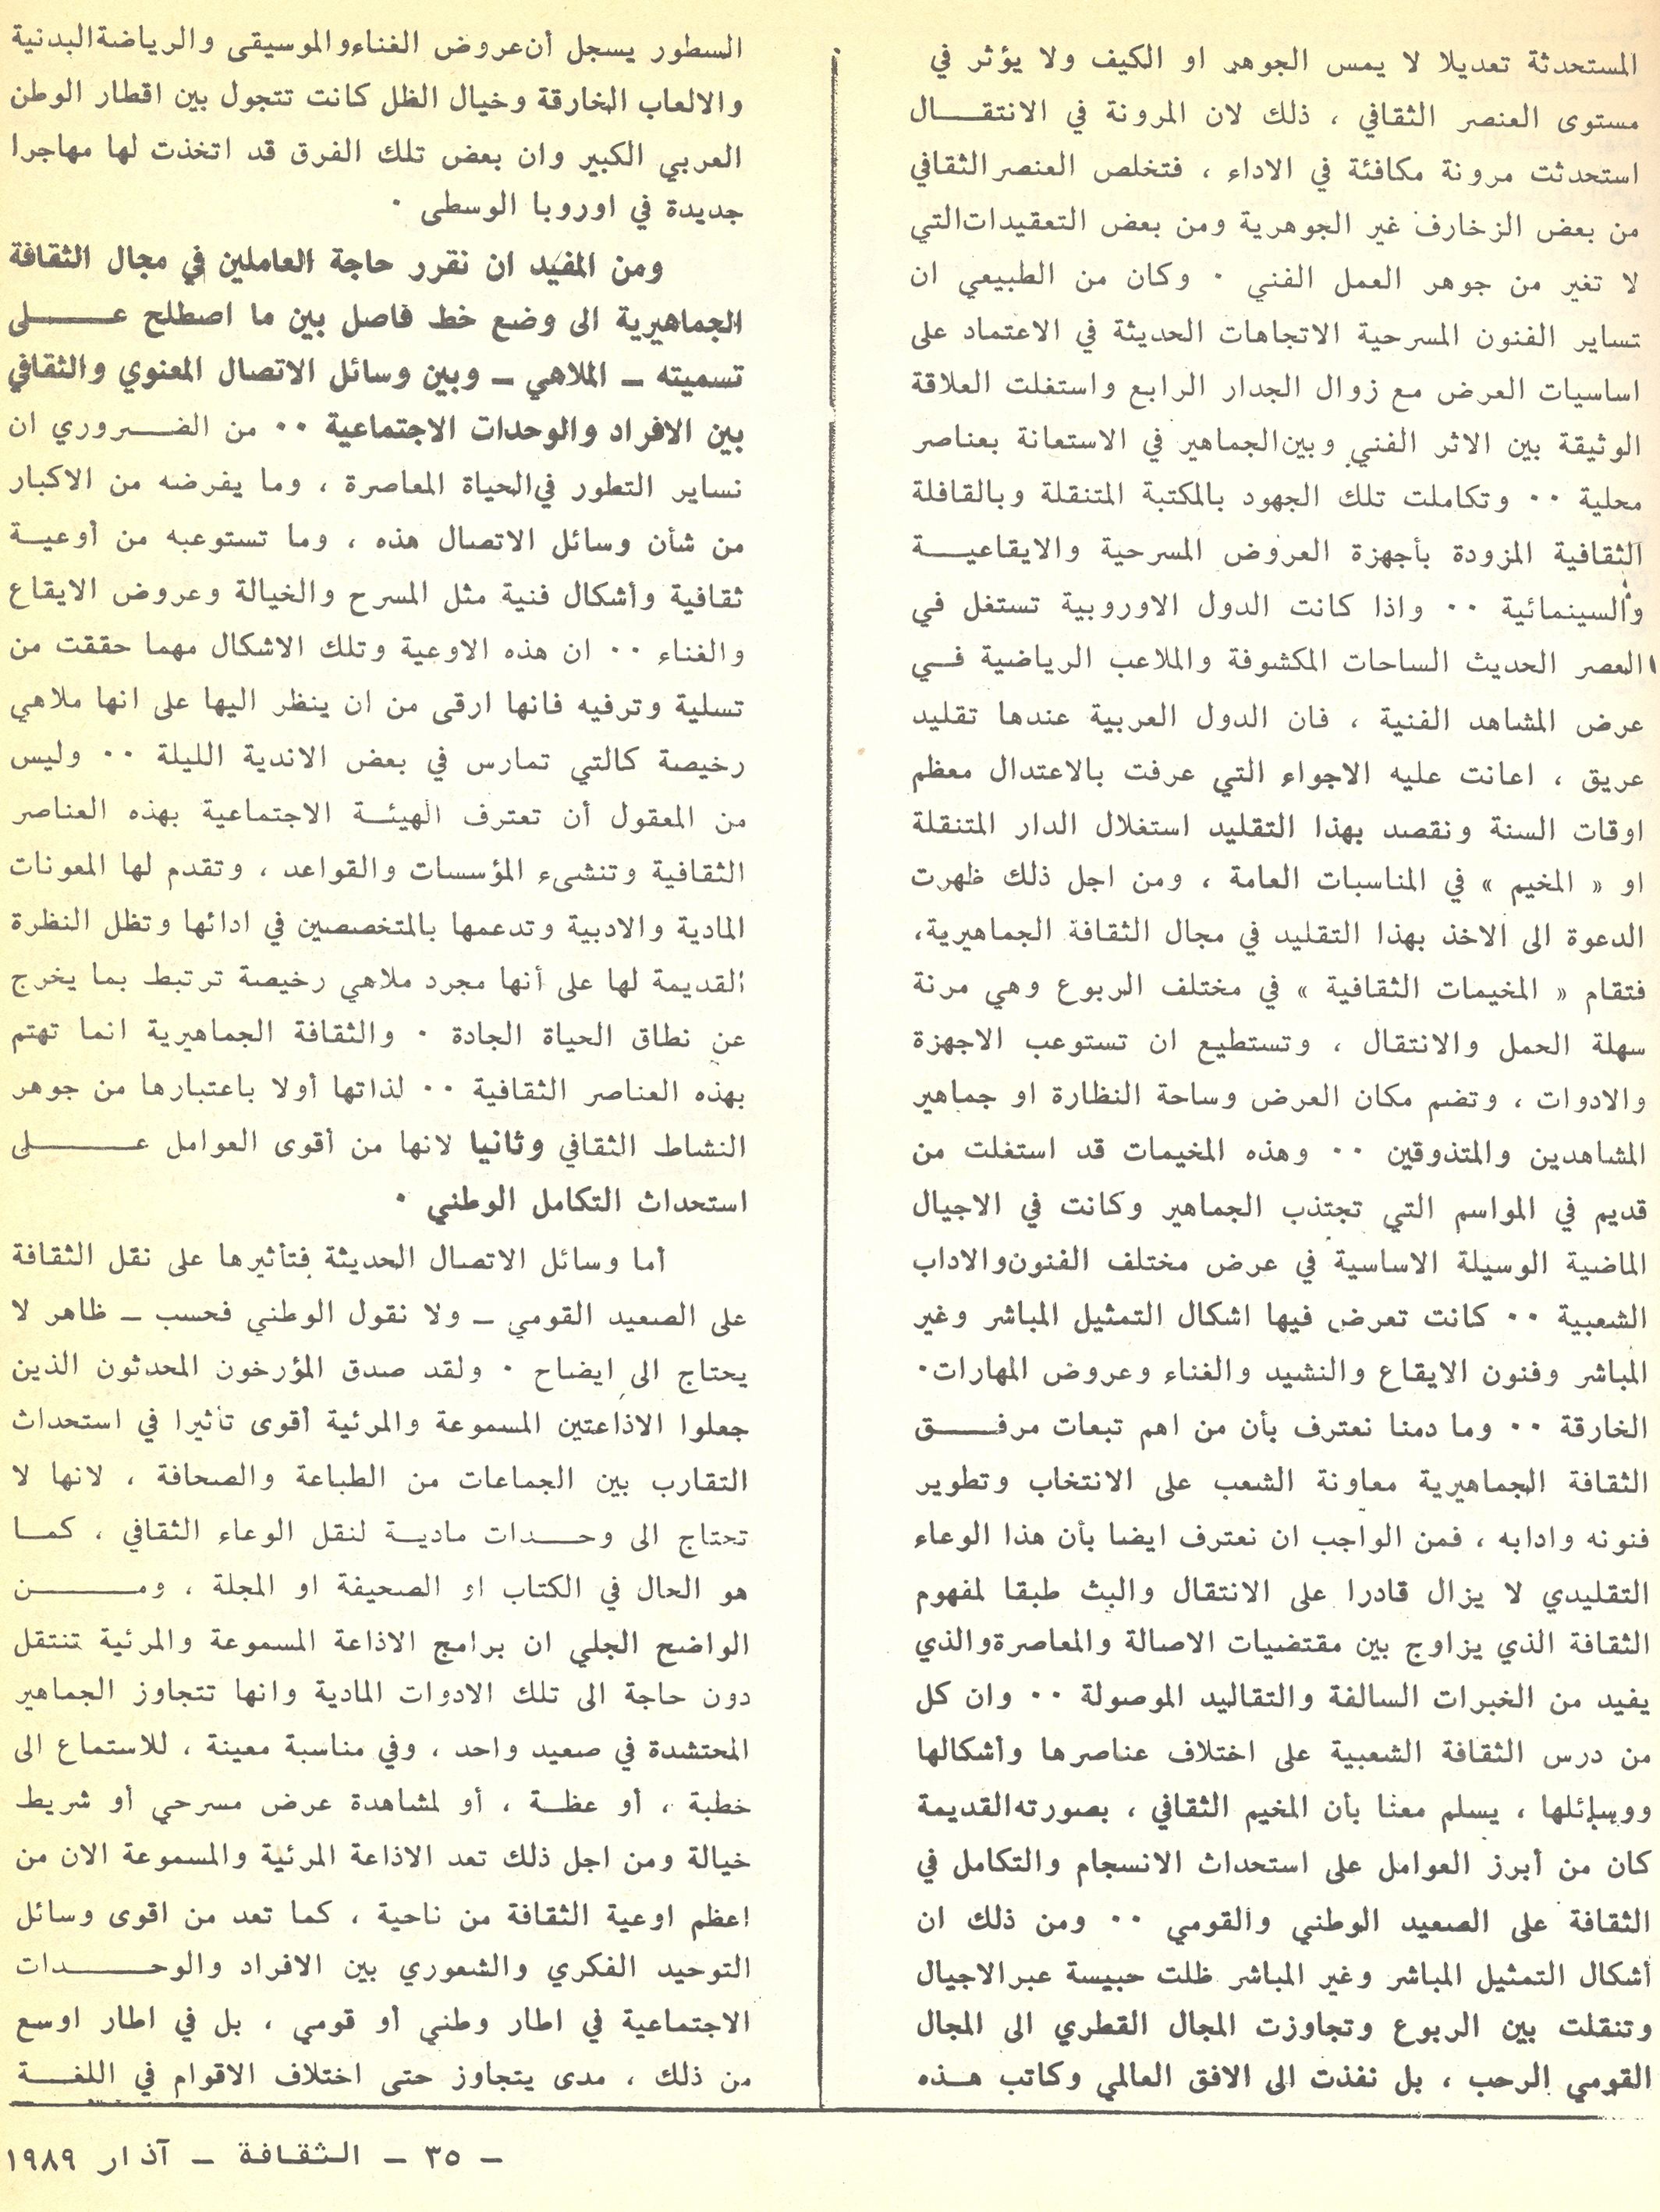 المستحدثة تعديلا لا يمس الجوهر او الكيف ولا يؤثر في
مستوى العنصر الثقافي ، ذلك لان المرونة في الانتقـــال
استحدثت مرونة مكافئة في الاداء ، فتخلص العنصر الثقافي
من بعض الزخارف غير الجوهرية ومن بعض التعقيدات التي
لا تغير من جوهر العمل الفني · وكان من الطبيعي ان
تساير الفنون المسرحية الاتجاهات الحديثة في الاعتماد على
اساسيات العرض مع زوال الجدار الرابع واستغلت العلاقة
الوثيقة بين الاثر الفني وبين الجماهير في الاستعانة بعناصر
محلية ·· وتكاملت تلك الجهود بالمكتبة المتنقلة وبالقافلة
الثقافية المزودة بأجهزة العروض المسرحية والايقاعيـــة
والسينمائية ·· واذا كانت الدول الاوروبية تستغل في
العصر الحديث الساحات المكشوفة والملاعب الرياضية فــي
عرض المشاهد الفنية ، فان الدول العربية عندها تقليد
عريق ، اعانت عليه الاجواء التي عرفت بالاعتدال معظم
اوقات السنة ونقصد بهذا التقليد استغلال الدار المتنقلة
او « المخيم » في المناسبات العامة ، ومن اجل ذلك ظهرت
الدعوة الى الاخذ بهذا التقليد في مجال الثقافة الجماهيرية،
فتقام « المخيمات الثقافية » في مختلف الربوع وهي مرنة
سهلة الحمل والانتقال ، وتستطيع ان تستوعب الاجهزة
والادوات ، وتضم مكان العرض وساحة النظارة او جماهير
المشاهدين والمتذوقين ·· وهذه المخيمات قد استغلت من
قديم في المواسم التي تجتذب الجماهير وكانت في الاجيال
الماضية الوسيلة الاساسية في عرض مختلف الفنون والاداب
الشعبية ·· كانت تعرض فيها اشكال التمثيل المباشر وغير
المباشر وفنون الايقاع والنشيد والغناء وعروض المهارات·
الخارقة ·· وما دمنا نعترف بأن من اهم تبعات مرفـــق
الثقافة الجماهيرية معاونة الشعب على الانتخاب وتطوير
فنونه وادابه ، فمن الواجب ان نعترف ايضا بأن هذا الوعاء
التقليدي لا يزال قادرا على الانتقال والبث طبقا لمفهوم
الثقافة الذي يزاوج بين مقتضيات الاصالة والمعاصرة والذي
يفيد من الخبرات السالفة والتقاليد الموصولة ·· وان كل
من درس الثقافة الشعبية على اختلاف عناصرها وأشكالها
ووسائلها ، يسلم معنا بأن المخيم الثقافي ، بصورته القديمة
كان من أبرز العوامل على استحداث الانسجام والتكامل في
الثقافة على الصعيد الوطني والقومي ·· ومن ذلك ان
أشكال التمثيل المباشر وغير المباشر ظلت حبيسة عبر الاجيال
وتنقلت بين الربوع وتجاوزت المجال القطري الى المجال
القومي الرحب ، بل نفذت الى الافق العالمي وكاتب هــذه
السطور يسجل أن عروض الغناء والموسيقى والرياضة البدنية
والالعاب الخارقة وخيال الظل كانت تتجول بين اقطار الوطن
العربي الكبير وان بعض تلك الفرق قد اتخذت لها مهاجرا
جديدة في اوروبا الوسطى ·
ومن المفيد ان نقرر حاجة العاملين في مجال الثقافة
الجماهيرية الى وضع خط فاصل بين ما اصطلح عــــلى
تسميته ــ الملاهي ــ وبين وسائل الاتصال المعنوي والثقافي
بين الافراد والوحدات الاجتماعية ·· من الضـــروري ان
نساير التطور في الحياة المعاصرة ، وما يفرضه من الاكبار
من شأن وسائل الاتصال هذه ، وما تستوعبه من أوعيــة
ثقافية وأشكال فنية مثل المسرح والخيالة وعروض الايقاع
والغناء ·· ان هذه الاوعية وتلك الاشكال مهما حققت من
تسلية وترفيه فانها ارقى من ان ينظر اليها على انها ملاهي
رخيصة كالتي تمارس في بعض الاندية الليلة ·· وليس
من المعقول أن تعترف الهيئــة الاجتماعية بهذه العناصر
الثقافية وتنشىء المؤسسات والقواعد ، وتقدم لها المعونات
المادية والادبية وتدعمها بالمتخصصين في ادائها وتظل النظرة
القديمة لها على أنها مجرد ملاهي رخيصة ترتبط بما يخرج
عن نطاق الحياة الجادة · والثقافة الجماهيرية انما تهتم
بهذه العناصر الثقافية ·· لذاتها أولا باعتبارها من جوهر
النشاط الثقافي وثانيا لانها من أقوى العوامل عــــلى
استحداث التكامل الوطني ·
أما وسائل الاتصال الحديثة فتأثيرها على نقل الثقافة
على الصعيد القومي ــ ولا نقول الوطني فحسب ــ ظاهر لا
يحتاج الى ايضاح · ولقد صدق المؤرخون المحدثون الذين
جعلوا الاذاعتين المسموعة والمرئية أقوى تأثيرا في استحداث
التقارب بين الجماعات من الطباعة والصحافة ، لانها لا
تحتاج الى وحـــدات ماديــة لنقل الوعاء الثقافي ، كمــا
هو الحال في الكتاب او الصحيفة او المجلة ، ومـــــن
الواضح الجلي ان برامج الاذاعة المسموعة والمرئية تنتقل
دون حاجة الى تلك الادوات المادية وانها تتجاوز الجماهير
المحتشدة في صعيد واحد ، وفي مناسبة معينة ، للاستماع الى
خطبة ، أو عظــة ، أو لمشاهدة عرض مسرحي أو شريط
خيالة ومن اجل ذلك تعد الاذاعة المرئية والمسموعة الان من
اعظم اوعية الثقافة من ناحية ، كما تعد من اقوى وسائل
التوحيد الفكري والشعوري بين الافراد والوحـــدات
الاجتماعية في اطار وطني أو قومي ، بل في اطار اوسع
من ذلك ، مدى يتجاوز حتى اختلاف الاقوام في اللغــة
ــ ٣٥ ــ الثقافة ــ آذار ١٩٨٩